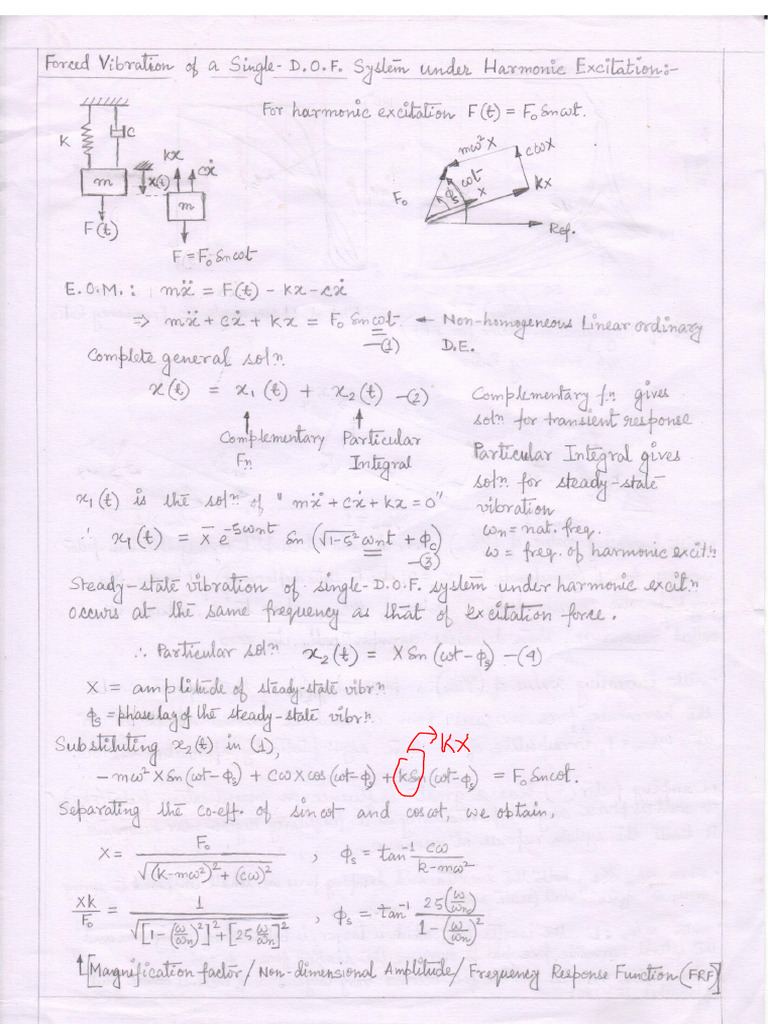 Forced Vibration of a Single-D.O.F. System under Harmonic Excitation:-
For harmonic excitation F(t) = F₀ Sinωt.
K
C
kx
cẋ
m
x(t)
m
F(t)
F = F₀ Sinωt
mω²X
cωX
F₀
ωt
ϕₛ
X
KX
Ref.
E.O.M.: mẍ = F(t) - kx - cẋ
⇒ mẍ + cẋ + kx = F₀ Sinωt —(1) ← Non-homogeneous Linear ordinary D.E.
Complete general solⁿ
x(t) = x₁(t) + x₂(t) —(2)
Complementary Fⁿ
Particular Integral
Complementary fⁿ gives
solⁿ for transient response
Particular Integral gives
solⁿ for steady-state
vibration
x₁(t) is the solⁿ of "mẍ + cẋ + kx = 0"
ωn = nat. freq.
∴ x₁(t) = X̄ e^(-ζωnt) Sin(√(1-ζ²) ωnt + ϕ₀) —(3)
ω = freq. of harmonic excit.ⁿ
Steady-state vibration of single-D.O.F. system under harmonic excit.ⁿ
occurs at the same frequency as that of excitation force.
∴ Particular solⁿ x₂(t) = X Sin(ωt - ϕₛ) —(4)
X = amplitude of steady-state vibrⁿ.
ϕₛ = phase lag of the steady-state vibrⁿ.
Substituting x₂(t) in (1),
KX
- mω² X Sin(ωt-ϕₛ) + cωX cos(ωt-ϕₛ) + k Sin(ωt-ϕₛ) = F₀ Sinωt.
Separating the co-eff. of sinωt and cosωt, we obtain,
X = F₀ / √((K-mω²)² + (cω)²) , ϕₛ = tan⁻¹ cω / (k-mω²)
Xk/F₀ = 1 / √([1-(ω/ωn)²]² + [2ζ ω/ωn]²) , ϕₛ = tan⁻¹ 2ζ(ω/ωn) / (1-(ω/ωn)²)
↑[Magnification factor/Non-dimensional Amplitude/Frequency Response Function (FRF)]